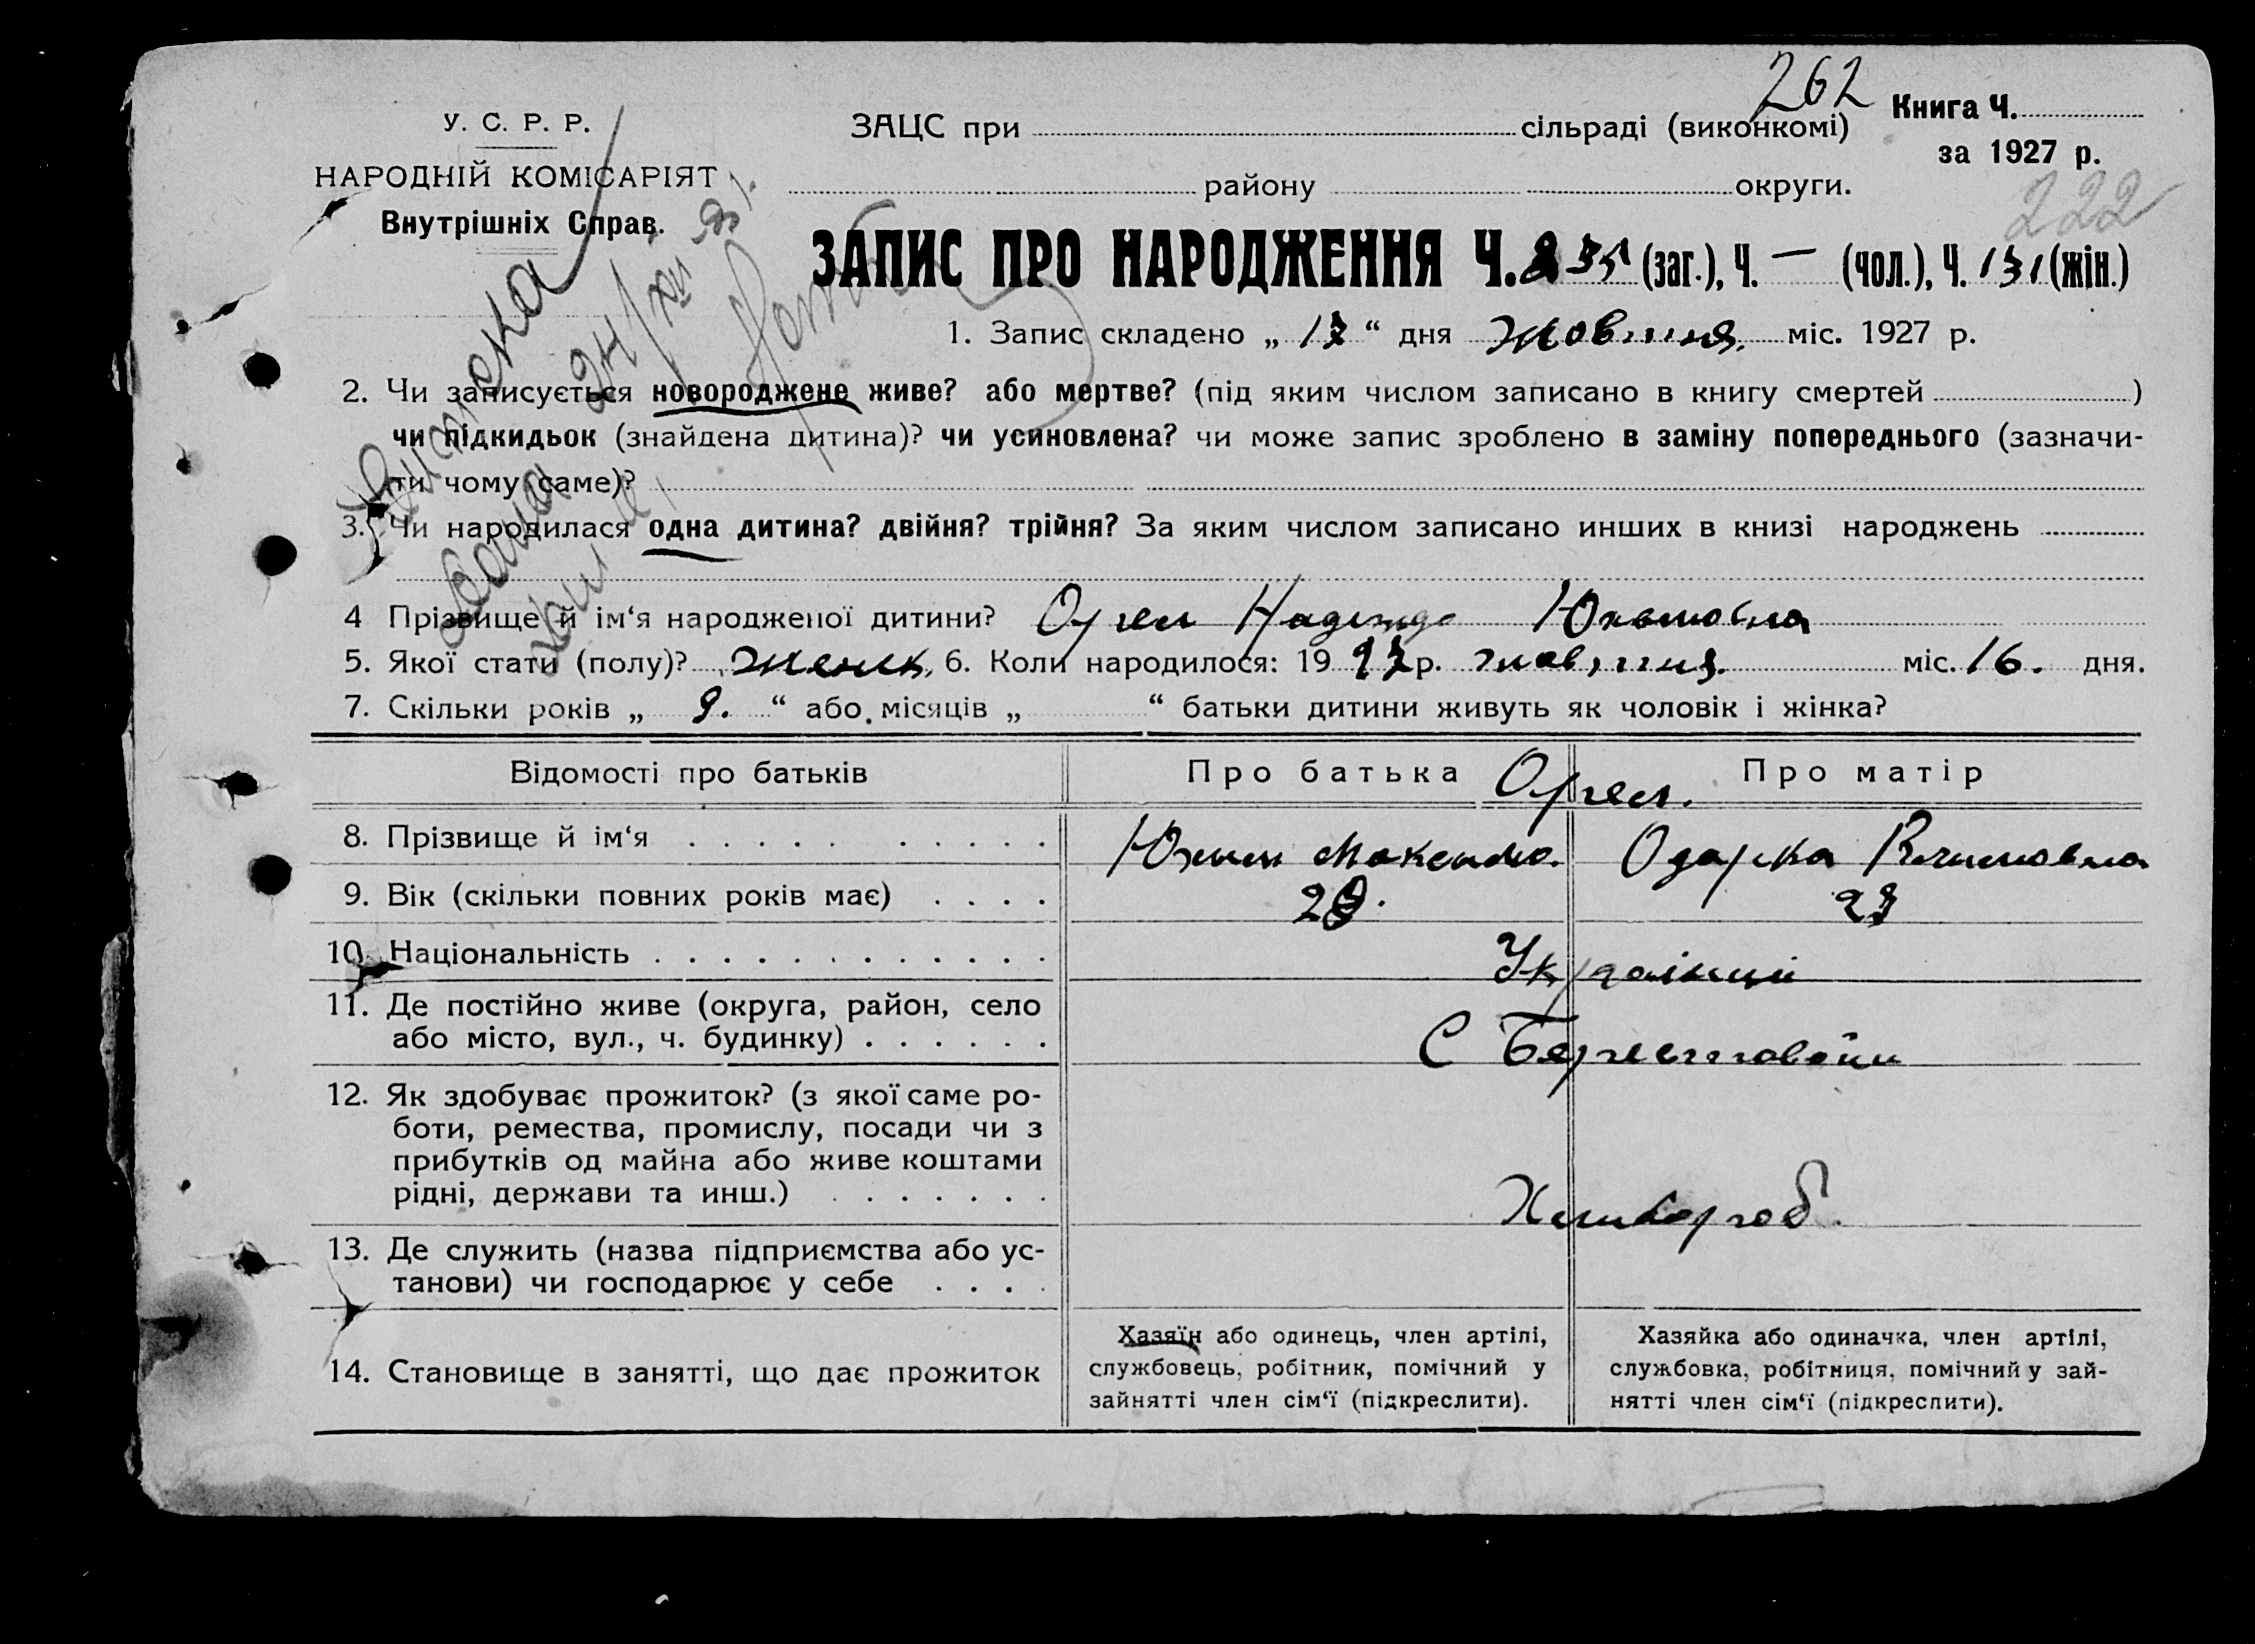 262
У. С. Р. Р.
НАРОДНІЙ КОМІСАРІЯТ
Внутрішніх Справ.
ЗАЦС при сільраді (виконкомі)
району округи.
Книга Ч.
за 1927 р.
222
ЗАПИС ПРО НАРОДЖЕННЯ Ч. 235 (заг.), Ч. — (чол.), Ч. 131 (жін.)
1. Запис складено „ 17 “ дня жовтня міс. 1927 р.
2. Чи записується новороджене живе? або мертве? (під яким числом записано в книгу смертей )
чи підкидьок (знайдена дитина)? чи усиновлена? чи може запис зроблено в заміну попереднього (зазначи-
ти чому саме)?
3. Чи народилася одна дитина? двійня? трійня? За яким числом записано инших в книзі народжень
4 Прізвище й ім‘я народженої дитини? Надежда
5. Якої стати (полу)? женск. 6. Коли народилося: 19 27 р. жовтня міс. 16. дня.
7. Скільки років „ 9. “ або місяців „ “ батьки дитини живуть як чоловік і жінка?
Відомості про батьків Про батька Про матір
8. Прізвище й ім‘я Одарка
9. Вік (скільки повних років має) 27
10. Національність Українці
11. Де постійно живе (округа, район, село
або місто, вул., ч. будинку)
С
12. Як здобуває прожиток? (з якої саме ро-
боти, ремества, промислу, посади чи з
прибутків од майна або живе коштами
рідні, держави та инш.) Хлібороб.
13. Де служить (назва підприємства або ус-
танови) чи господарює у себе
14. Становище в занятті, що дає прожиток
Хазяїн або одинець, член артілі,
службовець, робітник, помічний у
зайнятті член сім‘ї (підкреслити).
Хазяйка або одиначка, член артілі,
службовка, робітниця, помічний у зай-
нятті член сім‘ї (підкреслити).